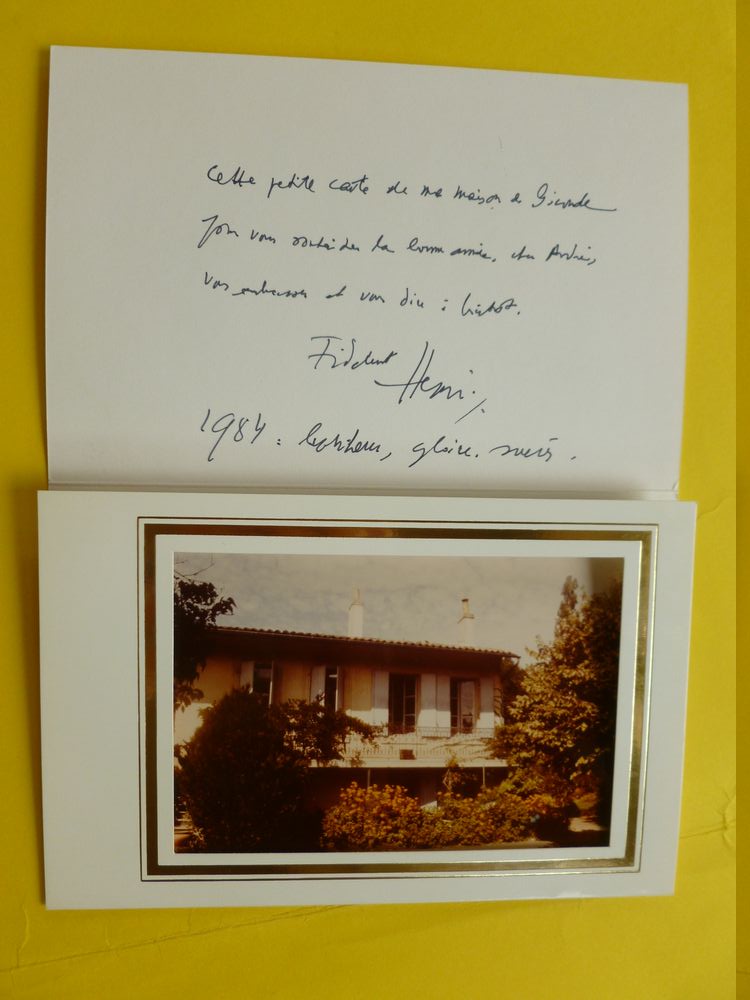 Cette petite carte de ma maison de Gironde
pour vous souhaiter la bonne année, cher André,
vous embrasser et vous dire à bientôt.
Fidèlement Henri.
1984 : bonheur, gloire. succès.